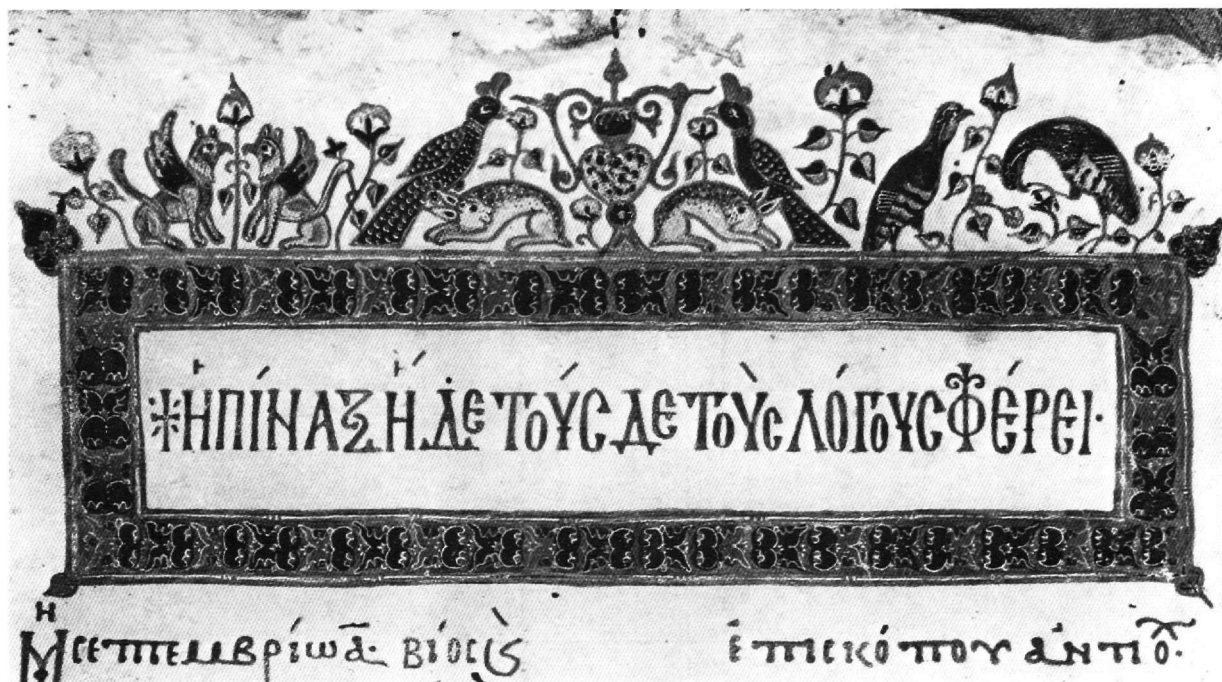 Ἡ ΠΊΝΑΞ Ἥ ΔΕ ΤΟΎΣ ΔΕ ΤΟῪΣ ΛΌΓΟΥΣ ΦΈΡΕΙ·
σεπτεμβρίω ᾱ· βίος ἐπισκόπου ἀντιο̑·